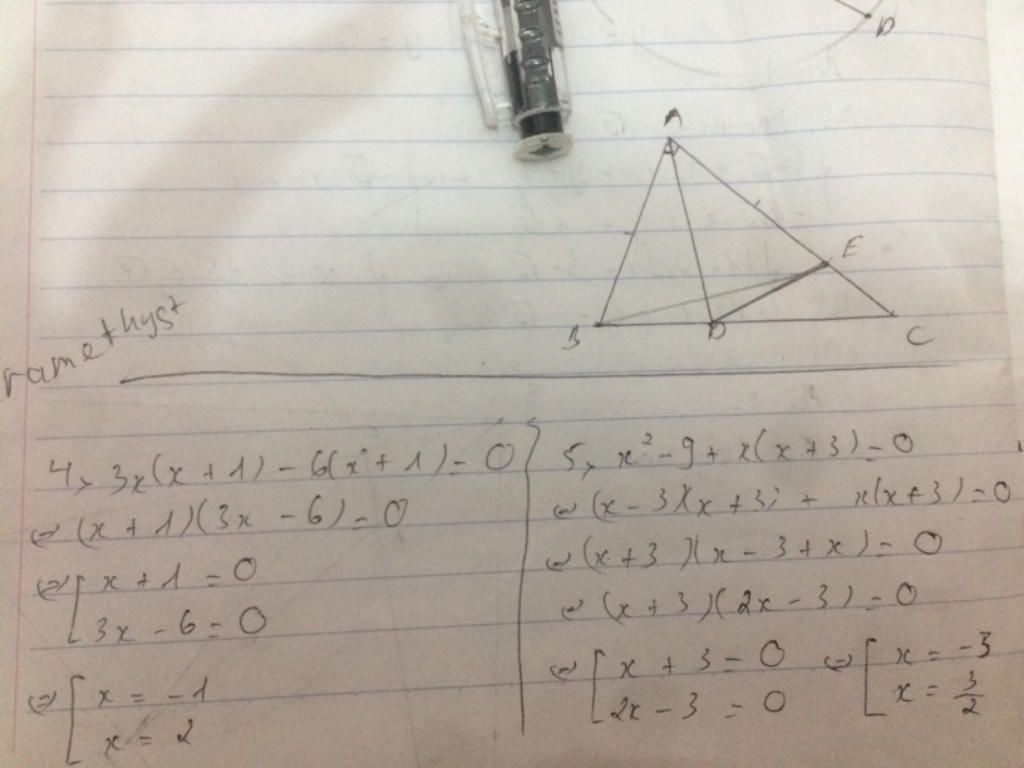 D
A
E
B
D
C
ramethyst
4, 3x(x + 1) - 6(x + 1) = 0
⇔ (x + 1)(3x - 6) = 0
⇔ [ x + 1 = 0
3x - 6 = 0
⇔ [ x = -1
x = 2
5, x² - 9 + x(x + 3) = 0
⇔ (x - 3)(x + 3) + x(x + 3) = 0
⇔ (x + 3)(x - 3 + x) = 0
⇔ (x + 3)(2x - 3) = 0
⇔ [ x + 3 = 0 ⇔ [ x = -3
2x - 3 = 0 x = 3/2